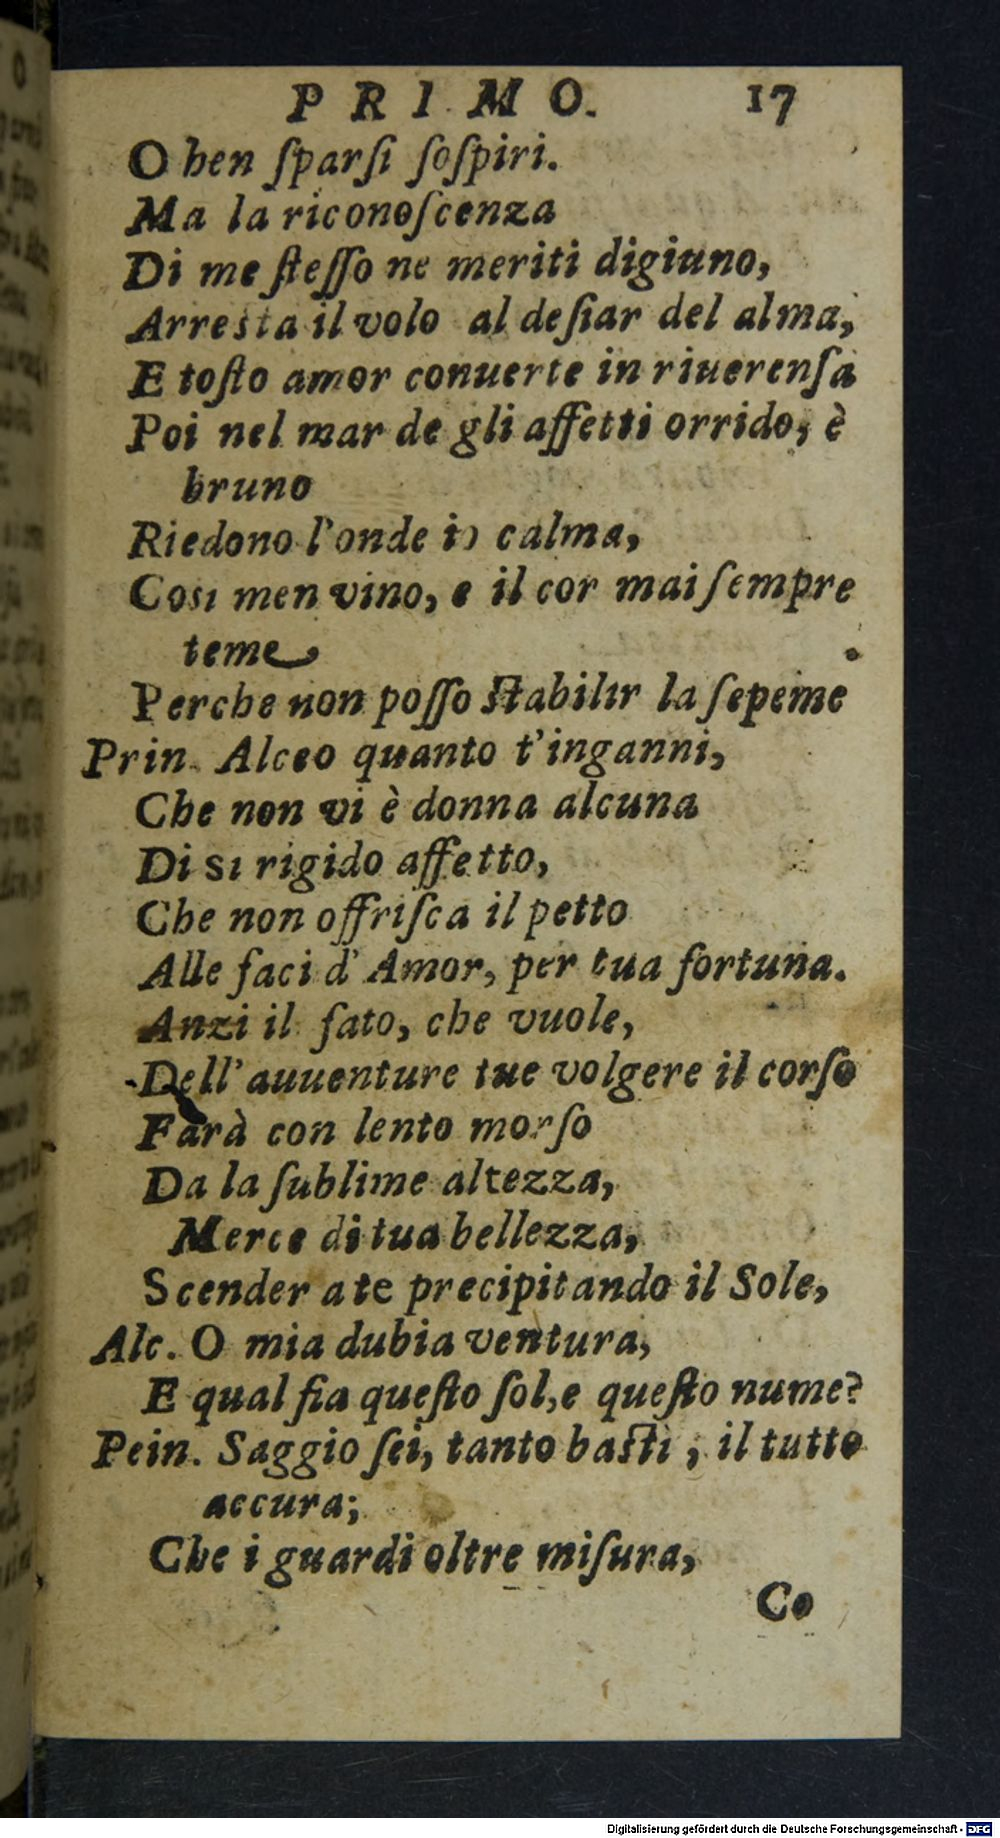 PRIMO. 17
O ben ſparſi ſoſpiri.
Ma la riconoſcenza
Di me ſteſſo ne meriti digiuno,
Arresta il volo al deſiar del alma,
E toſto amor conuerte in riuerenſa
Poi nel mar de gli affetti orrido, è
bruno
Riedono l'onde in calma,
Cosı men vino, e il cor mai ſempre
teme
Perche non poſſo stabilır la ſepeme
Prin. Alceo quanto t'inganni,
Che non vi è donna alcuna
Di sı rigido affetto,
Che non offriſca il petto
Alle faci d' Amor, per tua fortuna.
Anzi il fato, che vuole,
Dell' auuenture tue volgere il corſo
Farà con lento morſo
Da la ſublime altezza,
Merce di tua bellezza,
Scender a te precipitando il Sole,
Alc. O mia dubia ventura,
E qual fia queſto ſol, e queſto nume?
Pein. Saggio ſei, tanto basti ; il tutto
accura;
Che i guardi oltre miſura,
Co
Digitalisierung gefördert durch die Deutsche Forschungsgemeinschaft - DFG